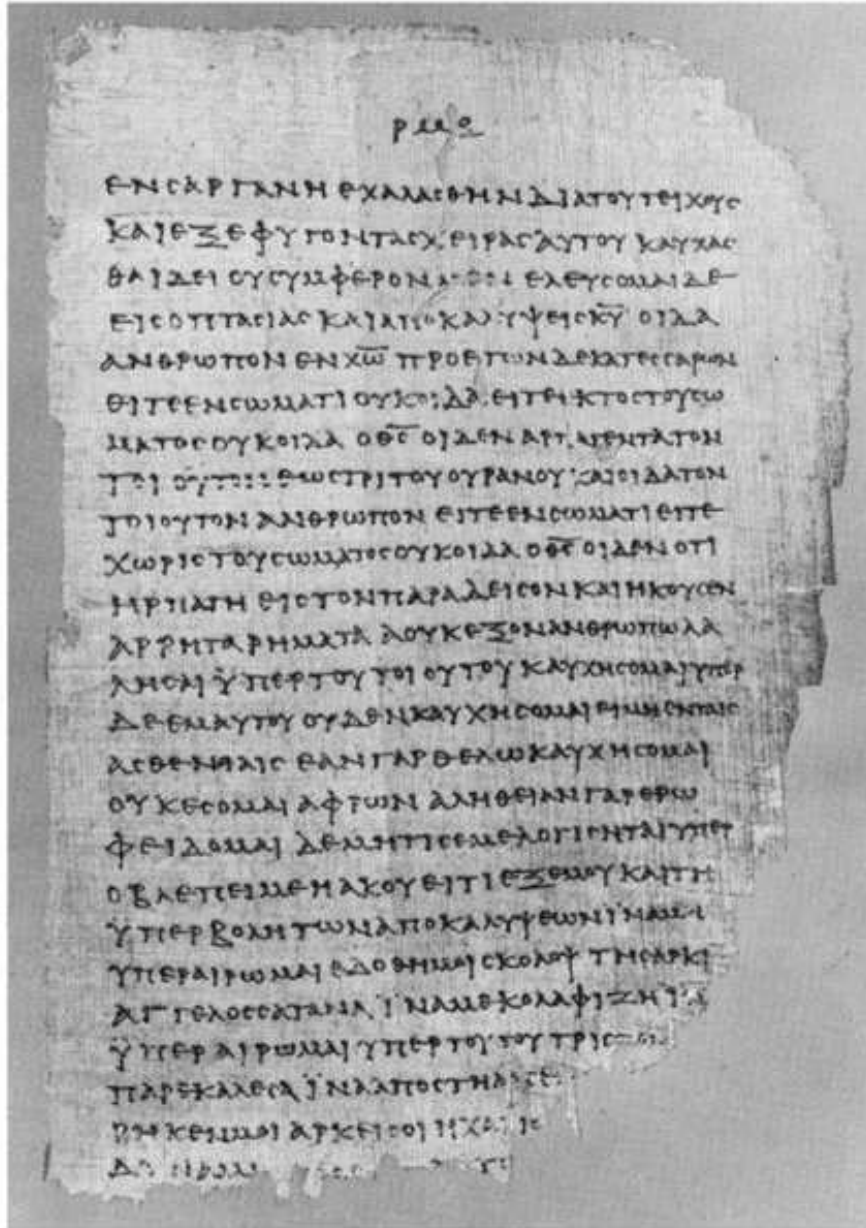 ρμο
ΕΝ CΑΡΓΑΝΗ ΕΧΑΛΑCΘΗΝ ΔΙΑ ΤΟΥ ΤΕΙΧΟΥC
ΚΑΙ ΕΞΕΦΥΓΟΝ ΤΑC ΧΕΙΡΑC ΑΥΤΟΥ ΚΑΥΧΑC
ΘΑΙ ΔΕΙ ΟΥ CΥΜΦΕΡΟΝ ΕΛΕΥCΟΜΑΙ ΔΕ
ΕΙC ΟΠΤΑCΙΑC ΚΑΙ ΑΠΟΚΑΛΥΨΕΙC Κ̅Υ̅ ΟΙΔΑ
ΑΝΘΡΩΠΟΝ ΕΝ Χ̅Ω̅ ΠΡΟ ΕΤΩΝ ΔΕΚΑΤΕCCΑΡΩΝ
ΕΙΤΕ ΕΝ CΩΜΑΤΙ ΟΥΚ ΟΙΔΑ ΕΙΤΕ ΕΚΤΟC ΤΟΥ CΩ
ΜΑΤΟC ΟΥΚ ΟΙΔΑ Ο Θ̅C̅ ΟΙΔΕΝ ΑΡΠΑΓΕΝΤΑ ΤΟΝ
ΤΟΙΟΥΤΟΝ ΕΩC ΤΡΙΤΟΥ ΟΥΡΑΝΟΥ ΚΑΙ ΟΙΔΑ ΤΟΝ
ΤΟΙΟΥΤΟΝ ΑΝΘΡΩΠΟΝ ΕΙΤΕ ΕΝ CΩΜΑΤΙ ΕΙΤΕ
ΧΩΡΙC ΤΟΥ CΩΜΑΤΟC ΟΥΚ ΟΙΔΑ Ο Θ̅C̅ ΟΙΔΕΝ ΟΤΙ
ΗΡΠΑΓΗ ΕΙC ΤΟΝ ΠΑΡΑΔΕΙCΟΝ ΚΑΙ ΗΚΟΥCΕΝ
ΑΡΡΗΤΑ ΡΗΜΑΤΑ Α ΟΥΚ ΕΞΟΝ ΑΝΘΡΩΠΩ ΛΑ
ΛΗCΑΙ ΫΠΕΡ ΤΟΥ ΤΟΙΟΥΤΟΥ ΚΑΥΧΗCΟΜΑΙ ΥΠΕΡ
ΔΕ ΕΜΑΥΤΟΥ ΟΥΔΕΝ ΚΑΥΧΗCΟΜΑΙ ΕΙ ΜΗ ΕΝ ΤΑΙC
ΑCΘΕΝΙΑΙC ΕΑΝ ΓΑΡ ΘΕΛΩ ΚΑΥΧΗCΟΜΑΙ
ΟΥΚ ΕCΟΜΑΙ ΑΦΡΩΝ ΑΛΗΘΕΙΑΝ ΓΑΡ ΕΡΩ
ΦΕΙΔΟΜΑΙ ΔΕ ΜΗ ΤΙC ΕΜΕ ΛΟΓΙCΗΤΑΙ ΥΠΕΡ
Ο ΒΛΕΠΕΙ ΜΕ Η ΑΚΟΥΕΙ ΤΙ ΕΞ ΕΜΟΥ ΚΑΙ ΤΗ
ΫΠΕΡΒΟΛΗ ΤΩΝ ΑΠΟΚΑΛΥΨΕΩΝ ΪΝΑ ΜΗ
ΥΠΕΡΑΙΡΩΜΑΙ ΕΔΟΘΗ ΜΟΙ CΚΟΛΟΨ ΤΗ CΑΡΚΙ
ΑΓΓΕΛΟC CΑΤΑΝΑ ΪΝΑ ΜΕ ΚΟΛΑΦΙΖΗ
ΫΠΕΡΑΙΡΩΜΑΙ ΥΠΕΡ ΤΟΥΤΟΥ ΤΡΙC
ΠΑΡΕΚΑΛΕCΑ ΪΝΑ ΑΠΟCΤΗ
ΡΗΚΕΝ ΜΟΙ ΑΡΚΕΙ CΟΙ Η ΧΑΡΙC